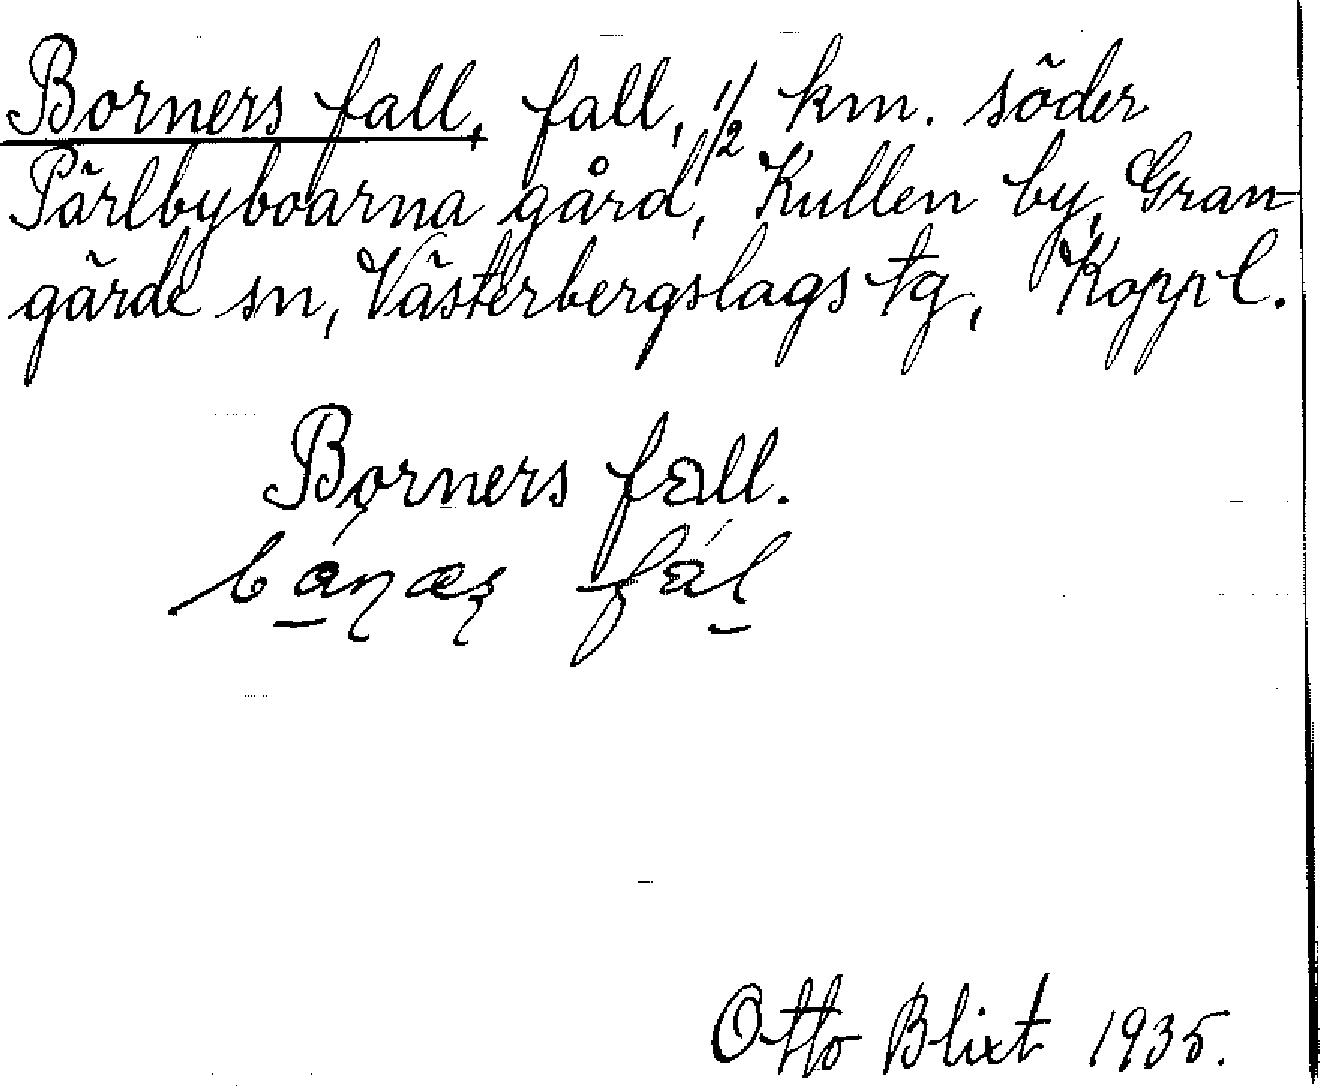 Borners fall, fall, 1/2 km. söder
Pärlbyboarna gård, Kullen by, Gran-
gärde sn, Västerbergslags tg, Koppl.
Borners fall.
Otto Blixt 1935.